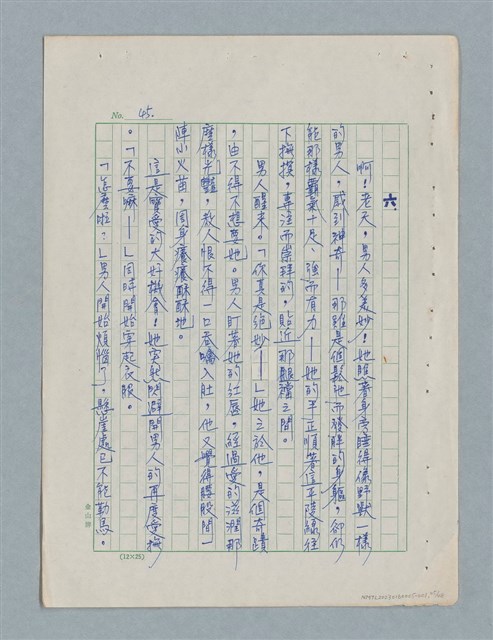 No. 45.
六、
啊！老天，男人多美妙！她瞧著身旁睡得像野獸一樣
的男人，感到神奇——那雖是個鬆弛而發胖的身軀，卻仍
能那樣霸氣十足、強而有力——她的手正順著這平陵線往
下撫摸，專注而崇拜的，貼近那腿襠之間。
男人醒來。「你真是絕妙——」她之於他，是個奇蹟
，由不得不想要她。男人盯著她的紅唇，經過愛的滋潤那
麼樣光豔，教人恨不得一口吞噬入肚，他又覺得髀股間一
陣小火苗，周身癢癢酥酥地。
這是難受的大好機會！她突然閃避開男人的再度愛撫
。「不要嘛——」同時開始穿起衣服。
「怎麼啦？」男人開始煩惱了，懸崖處已不能勒馬。
金山牌
(12×25)